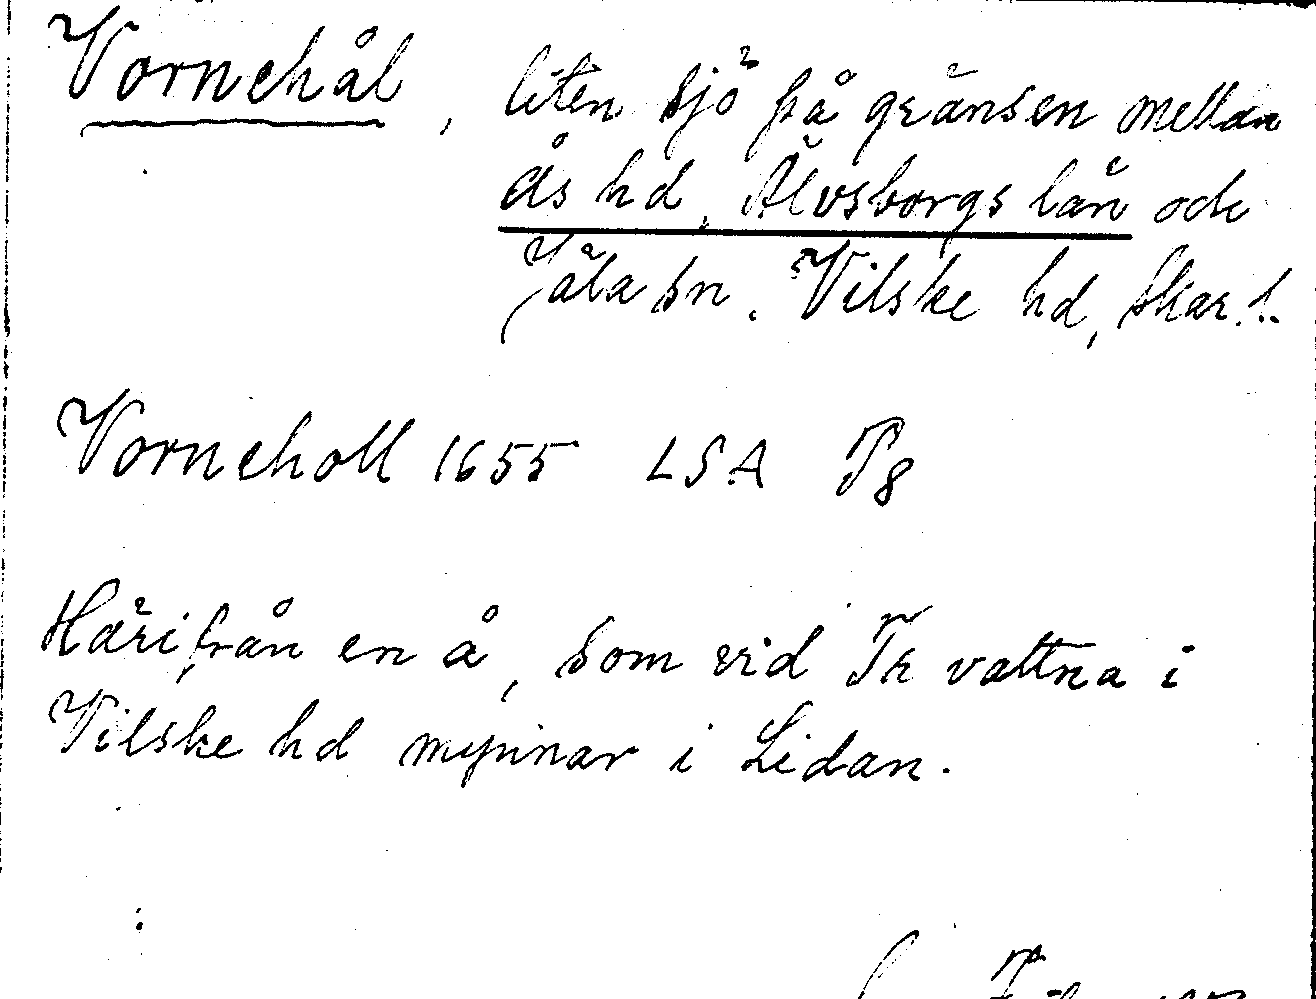 Vornehål, liten sjö på gränsen mellan
Ås hd, Älvsborgs län och
Jäla sn. Vilske hd, Skar.l.
Vorneholl 1655 LSA P8
Härifrån en å, som vid Tr vattna i
Vilske hd mynnar i Lidan.